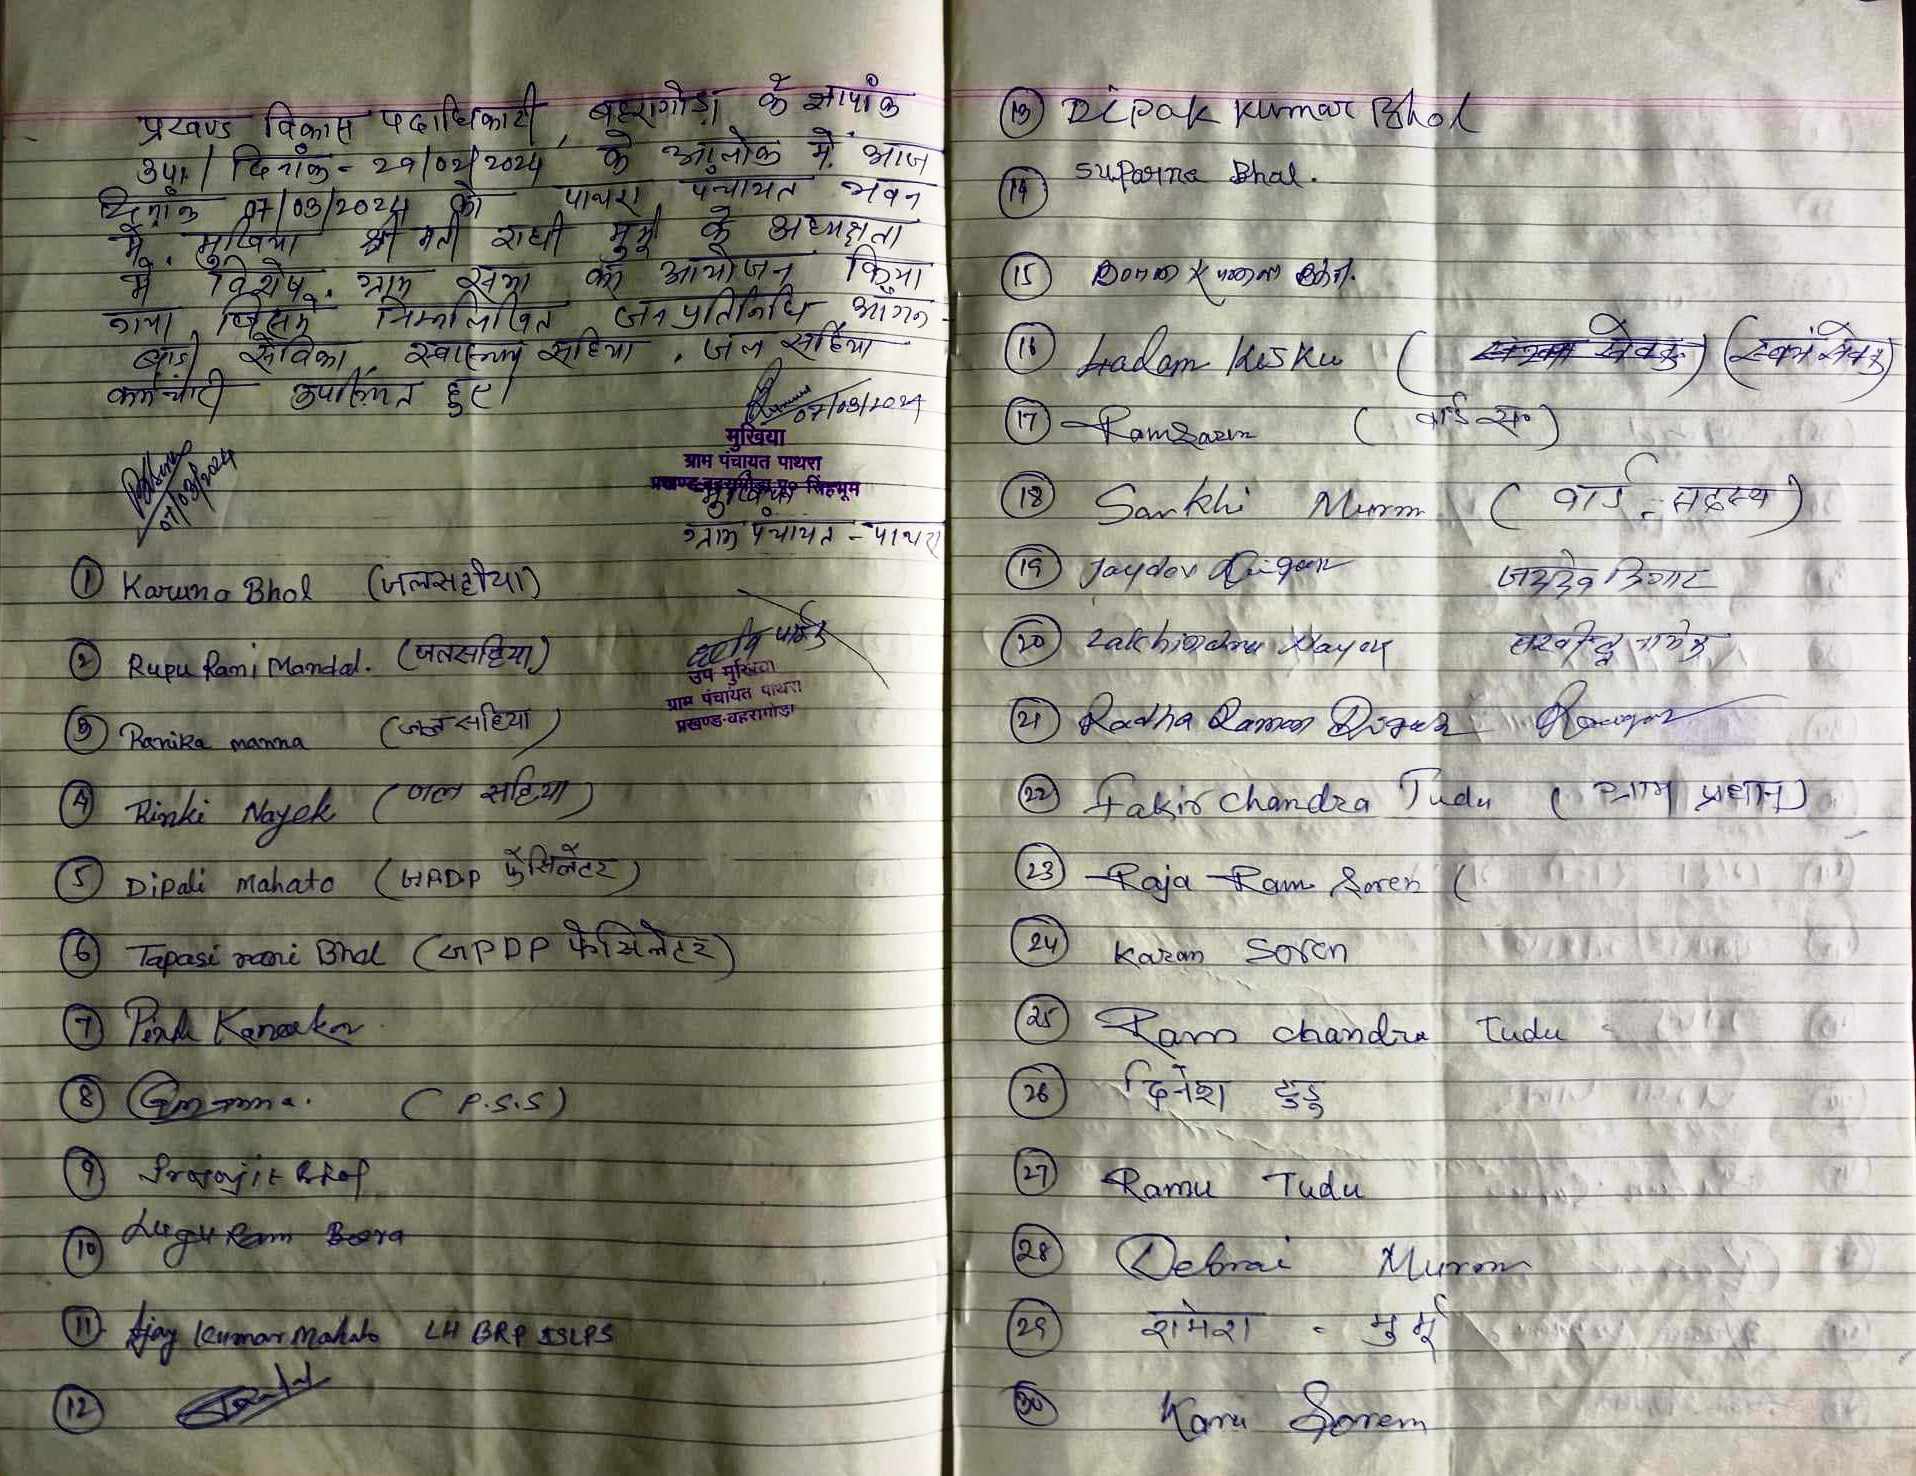 प्रखण्ड विकास पदाधिकारी, बहरागोड़ा के ज्ञापांक
दिनांक - 29/02/2024 के आलोक में आज
दिनांक 07/03/2024 को पाथरा पंचायत भवन
में मुखिया श्री मती राधी मुर्मू के अध्यक्षता
में विशेष ग्राम सभा का आयोजन किया
गया, जिसमें निम्नलिखित जनप्रतिनिधि आंगन-
बाड़ी सेविका, स्वास्थ्य सहिया, जल सहिया
कर्मचारी उपस्थित हुए।
07/03/2024
मुखिया
ग्राम पंचायत पाथरा
प्रखण्ड-बहरागोड़ा पू० सिंहभूम
मुखिया
ग्राम पंचायत - पाथरा
07/03/2024
① Karuna Bhol (जलसहीया)
② Rupu Rani Mandal. (जलसहिया)
उप मुखिया
ग्राम पंचायत पाथरा
प्रखण्ड-बहरागोड़ा
③ Ranika manna (जल सहिया)
④ Rinki Nayek (जल सहिया)
⑤ Dipali Mahato (GPDP फेसिलेटर)
⑥ Tapasi rani Bhol (GPDP फेसिलेटर)
⑦
⑧ (P.S.S)
⑨ Bhol
⑩ Lugu Ram Bera
⑪ Ajay Kumar Mahato LH BRP JSLPS
⑫
⑬ Dipak Kumar Bhol
⑭ Suparna Bhal.
⑮
⑯ Ladam Kisku
⑰ Ramsaren (वार्ड स०)
⑱ Sankhi Murm (वार्ड - सदस्य)
⑲ Jaydev Digar जयदेव डिगार
⑳ Lakhindra Nayek लखीन्द्र नायेक
㉑ Radha Raman Digar
㉒ Fakir chandra Tudu (ग्राम प्रधान)
㉓ Raja Ram Soren (
㉔ Karan Soren
㉕ Ram chandra Tudu
㉖ दिनेश टुडु
㉗ Ramu Tudu
㉘ Debrai Murm
㉙ रामेश - मुर्मू
㉚ Karu Sorem